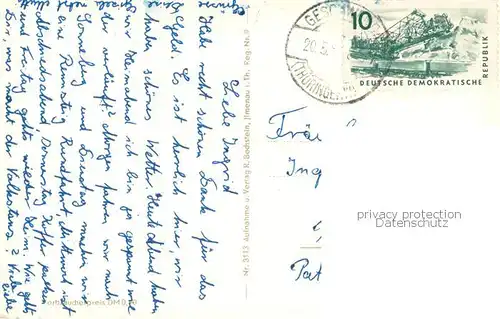 Liebe Ingrid!
Habe recht schönen Dank für das
Geld. Es ist herrlich hier, wir
haben schönes Wetter. Heute Abend haben
wir Heimabend ich bin ja gespannt wie
der verläuft. Morgen fahren wir nach
Sonneberg und Dienstag machen wir
eine Rennsteig Rundfahrt. Mittwoch ist
Abschiedsabend Donnerstag Koffer packen
und Freitag gehts wieder heim. Wie geht
Dir, was macht der Volkstanz? Viele
Grüße
Nr. 3113 Aufnahme u. Verlag R. Bechstein, Ilmenau i. Th. Reg. Nr. 9
DM 0,
GES
20.
(THÜRINGEN
10
DEUTSCHE DEMOKRATISCHE
REPUBLIK
Fräu
Ing
Pat
privacy protection
Datenschutz